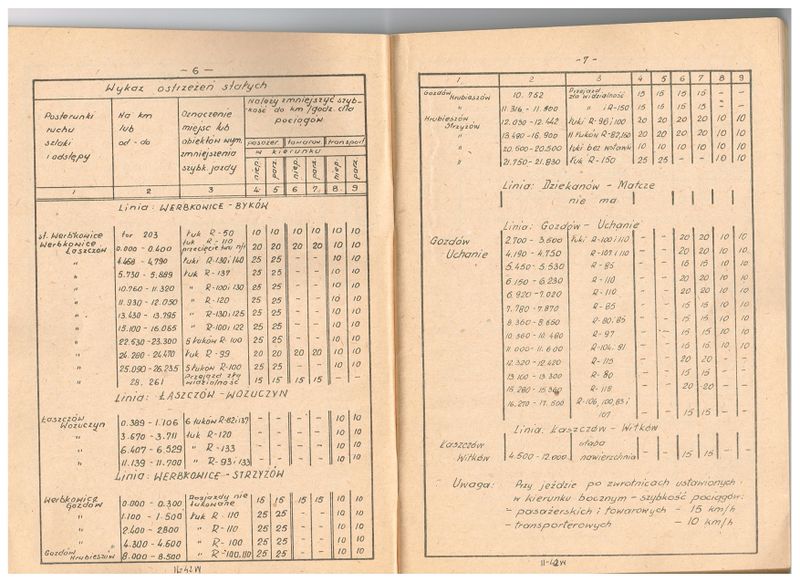 - 6 -
Wykaz ostrzeżeń stałych
Posterunki ruchu szlaki i odstępy | Na km lub od - do | Oznaczenie miejsc lub obiektów wym. zmniejszenia szybk. jazdy | Należy zmniejszyć szybkość do km/godz. dla pociągów
pasażer. | towarow. | transport.
w kierunku
niep. | parz. | niep. | parz. | niep. | parz.
1 | 2 | 3 | 4. | 5. | 6. | 7. | 8. | 9
Linia: WERBKOWICE - BYKÓW
st. Werbkowice | tor 203 | łuk R-50 | 10 | 10 | 10 | 10 | 10 | 10
Werbkowice Łaszczów | 0.000 - 0.400 | łuk R-110 przecięcie toru n/t | 20 | 20 | 20 | 20 | 10 | 10
" | 4.468 - 4.790 | łuki R-130 i 140 | 25 | 25 | - | - | 10 | 10
" | 5.730 - 5.899 | łuk R-137 | 25 | 25 | - | - | 10 | 10
" | 10.760 - 11.320 | " R-100 i 130 | 25 | 25 | - | - | 10 | 10
" | 11.930 - 12.050 | " R-120 | 25 | 25 | - | - | 10 | 10
" | 13.430 - 13.795 | " R-130 i 125 | 25 | 25 | - | - | 10 | 10
" | 15.100 - 16.065 | " R-100 i 122 | 25 | 25 | - | - | 10 | 10
" | 22.530 - 23.300 | 5 łuków R-100 | 25 | 25 | - | - | 10 | 10
" | 24.280 - 24.470 | łuk R-99 | 20 | 20 | 20 | 20 | 10 | 10
" | 25.090 - 26.235 | 5 łuków R-100 | 25 | 25 | - | - | 10 | 10
" | 28.261 | Przejazd zła widzialność | 15 | 15 | 15 | 15 | - | -
Linia: ŁASZCZÓW - WOŻUCZYN
Łaszczów Wożuczyn | 0.389 - 1.106 | 6 łuków R-82 i 137 | - | - | - | - | 10 | 10
" | 3.670 - 3.711 | łuk R-120 | - | - | - | - | 10 | 10
" | 6.407 - 6.529 | " R-133 | - | - | - | - | 10 | 10
" | 11.139 - 11.700 | " R-93 i 133 | - | - | - | - | 10 | 10
Linia: WERBKOWICE - STRZYŻÓW
Werbkowice Gozdów | 0.000 - 0.300 | Rozjazdy nie łukowane | 15 | 15 | 15 | 15 | 10 | 10
" | 1.100 - 1.500 | łuk R-110 | 25 | 25 | - | - | 10 | 10
" | 2.400 - 2800 | " R-110 | 25 | 25 | - | - | 10 | 10
" | 4.300 - 4.600 | " R-100 | 25 | 25 | - | - | 10 | 10
Gozdów Hrubieszów | 8.000 - 8.500 | " R-100,110 | 25 | 25 | - | - | 10 | 10
IL-42W
- 7 -
1 | 2 | 3 | 4 | 5 | 6 | 7 | 8 | 9
Gozdów Hrubieszów | 10.752 | Przejazd zła widzialność | 15 | 15 | 15 | 15 | - | -
" | 11.316 - 11.800 | " i R-150 | 15 | 15 | 15 | 15 | - | -
Hrubieszów Strzyżów | 12.030 - 12.442 | łuki R-96 i 100 | 20 | 20 | 20 | 20 | 10 | 10
" | 13.490 - 16.900 | 11 łuków R-82,150 | 20 | 20 | 20 | 20 | 10 | 10
" | 20.500 - 20.500 | łuki bez
" | 21.750 - 21.830 | łuk R-150 | 25 | 25 | - | - | 10 | 10
Linia: Dziekanów - Matcze
nie ma
Linia: Gozdów - Uchanie
Gozdów Uchanie | 2.700 - 3.600 | łuki R-100 i 110 | - | - | 20 | 20 | 10 | 10
4.190 - 4.750 | R-107 i 110 | - | - | 20 | 20 | 10 | 10
5.450 - 5.530 | R-85 | - | - | 15 | 15 | 10 | 10
6.150 - 6.230 | R-110 | - | - | 20 | 20 | 10 | 10
6.920 - 7.020 | R-110 | - | - | 20 | 20 | 10 | 10
7.780 - 7.870 | R-85 | - | - | 15 | 15 | 10 | 10
8.360 - 8.650 | R-80 i 85 | - | - | 15 | 15 | 10 | 10
10.360 - 10.480 | R-97 | - | - | 15 | 15 | 10 | 10
11.000 - 11.600 | R-104 i 91 | - | - | 15 | 15 | 10 | 10
12.320 - 12.420 | R-115 | - | - | 20 | 20
13.100 - 13.300 | R-80 | - | - | 15 | 15
15.280 - 15.360 | R-115 | - | - | 20 | 20
16.270 - 17.500 | R-106,100,85 i 107 | - | - | 15 | 15
Linia: Łaszczów - Witków
Łaszczów Witków | 4.500 - 12.000 | słaba nawierzchnia | - | - | 15 | 15 | - | -
Uwaga: Przy jeździe po zwrotnicach ustawionych
w kierunku bocznym - szybkość pociągów:
- pasażerskich i towarowych - 15 km/h
- transporterowych - 10 km/h
IL-42W